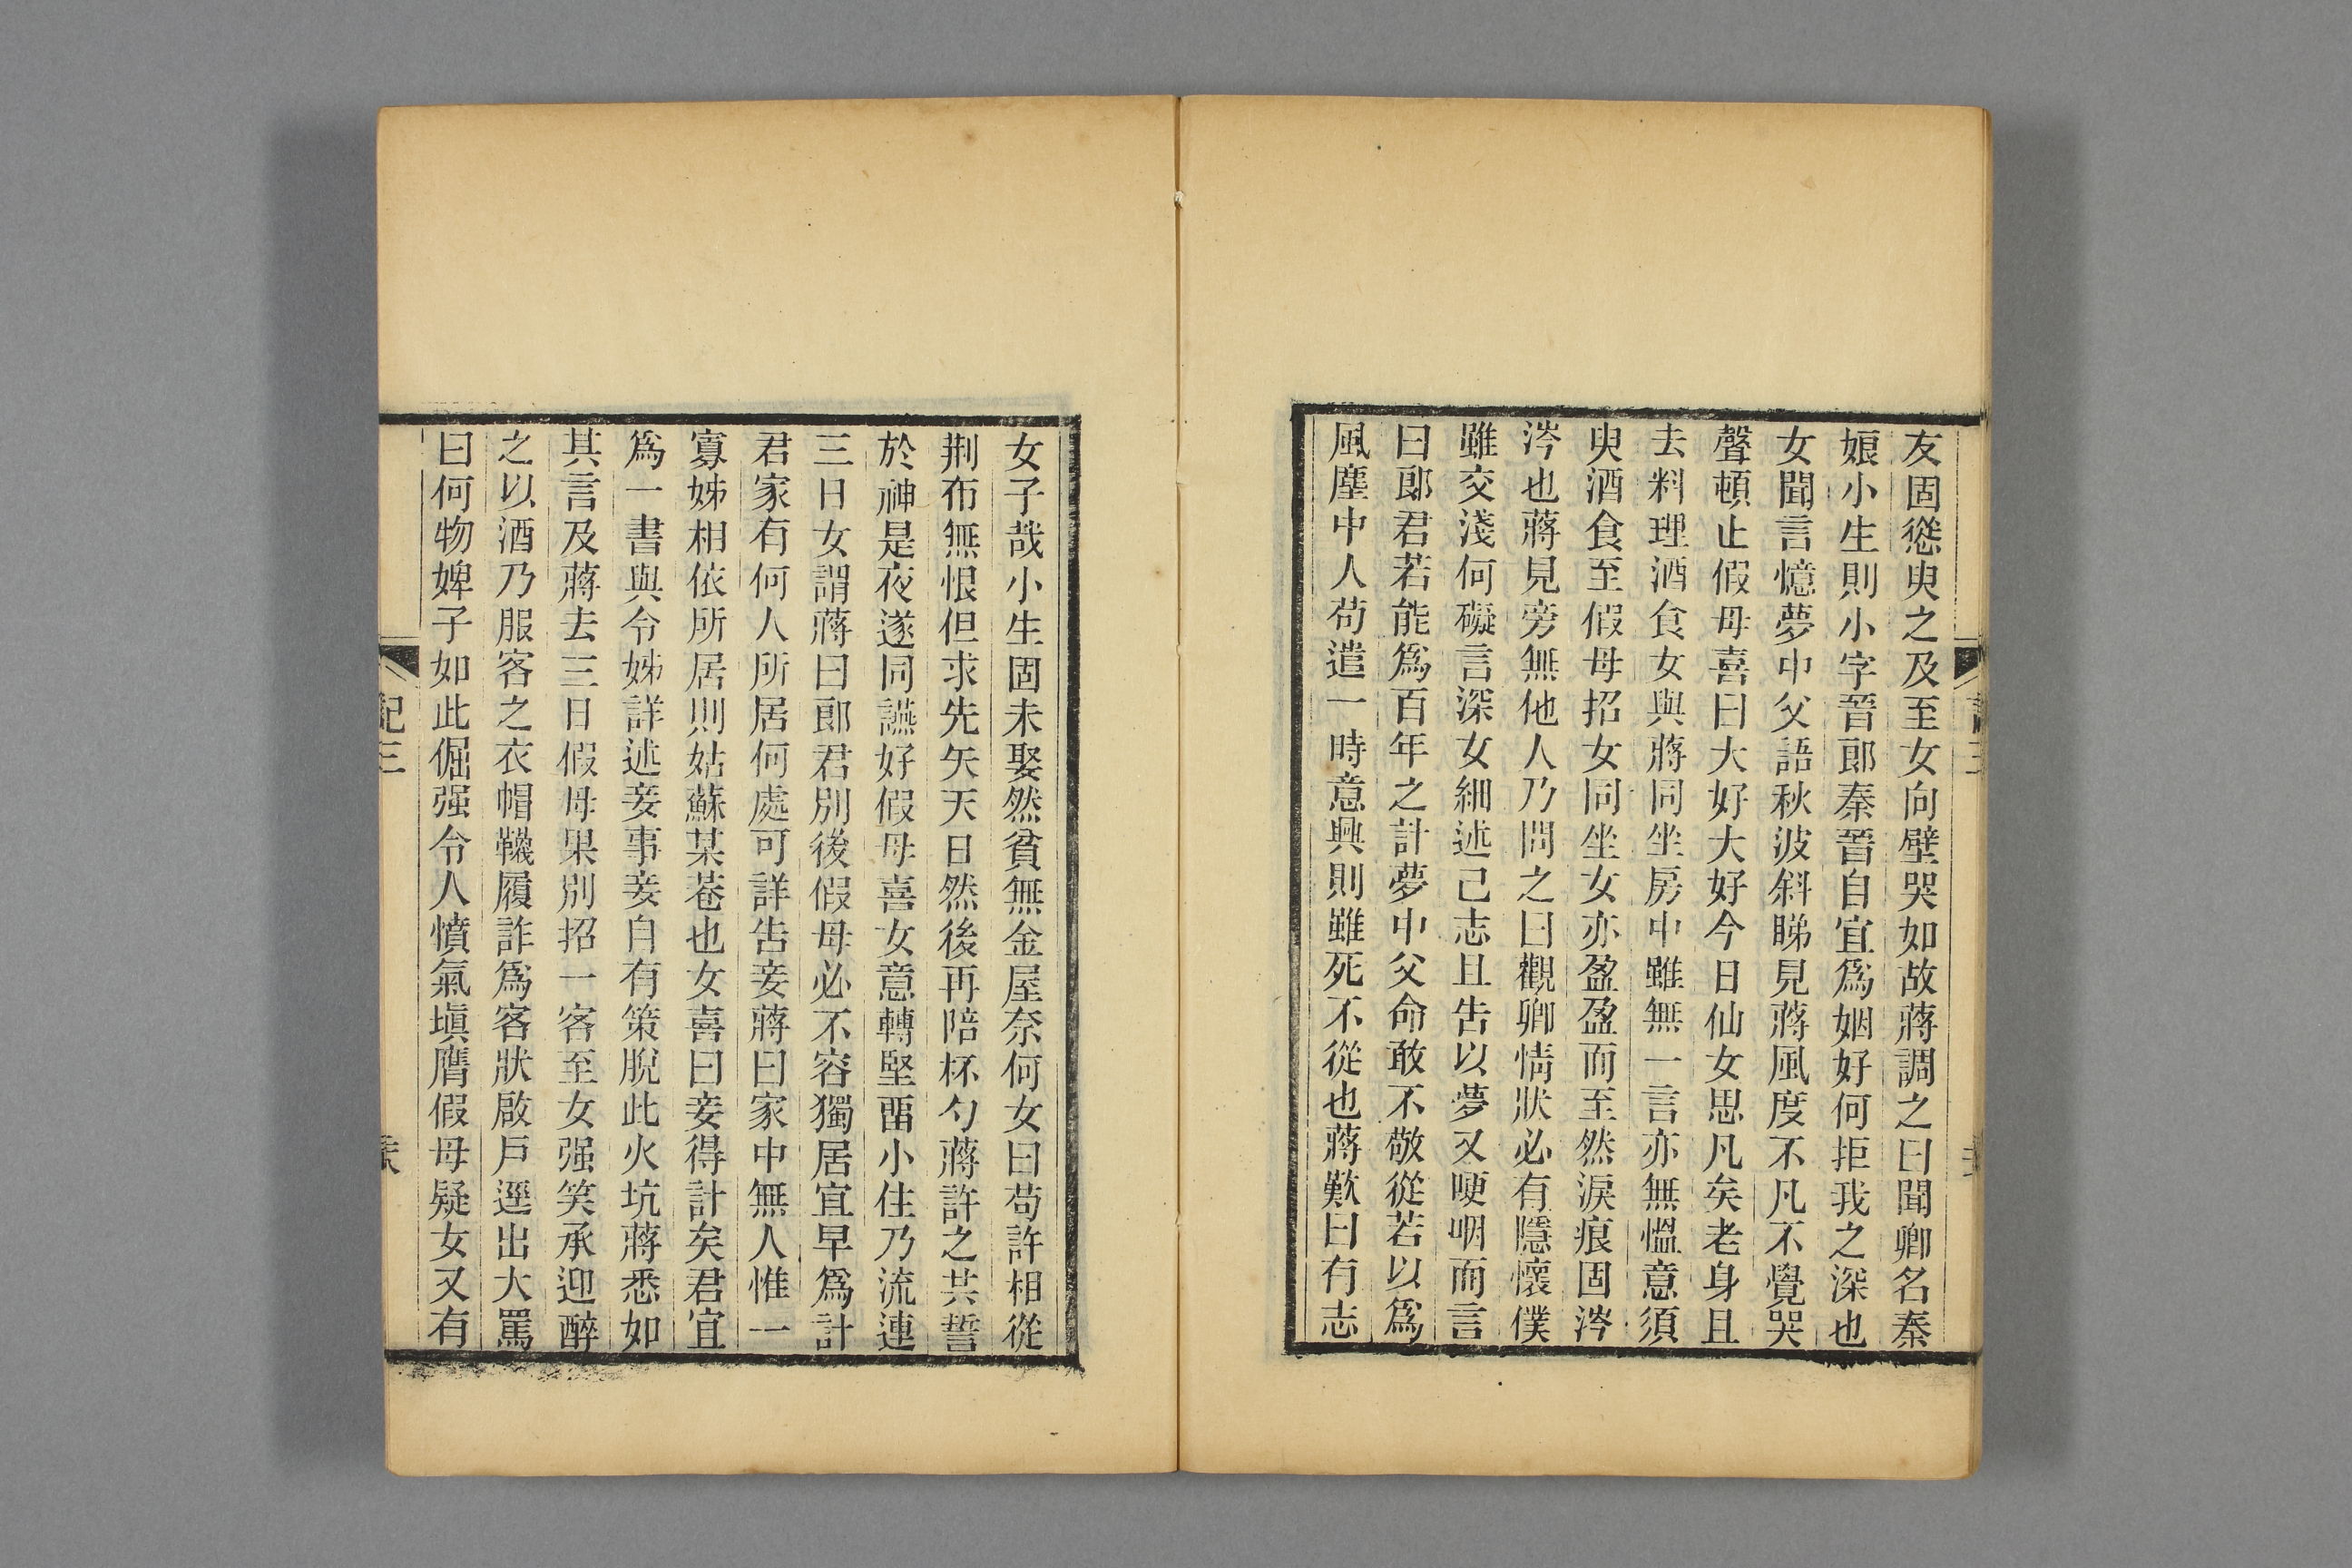 友固慫臾之及至女向壁哭如故蔣調之曰聞卿名秦
娘小生則小字晉郞秦晉自宜爲姻好何拒我之深也
女聞言憶夢中父語秋波斜睇見蔣風度不凡不覺哭
聲頓止假母喜曰大好大好今日仙女思凡矣老身且
去料理酒食女與蔣同坐房中雖無一言亦無慍意須
臾酒食至假母招女同坐女亦盈盈而至然淚痕固涔
涔也蔣見旁無他人乃問之曰觀卿情狀必有隱懷僕
雖交淺何礙言深女細述己志且告以夢又哽咽而言
曰郞君若能爲百年之計夢中父命敢不敬從若以爲
風塵中人苟遣一時意興則雖死不從也蔣歎曰有志
女子哉小生固未娶然貧無金屋奈何女曰苟許相從
荆布無恨但求先矢天日然後再陪杯勺蔣許之共誓
於神是夜遂同讌好假母喜女意轉堅畱小住乃流連
三日女謂蔣曰郞君別後假母必不容獨居宜早爲計
君家有何人所居何處可詳告妾蔣曰家中無人惟一
寡姊相依所居則姑蘇某巷也女喜曰妾得計矣君宜
爲一書與令姊詳述妾事妾自有策脫此火坑蔣悉如
其言及蔣去三日假母果別招一客至女强笑承迎醉
之以酒乃服客之衣帽韈履詐爲客狀啟戶逕出大罵
曰何物婢子如此倔强令人憤氣塡膺假母疑女又有
記三